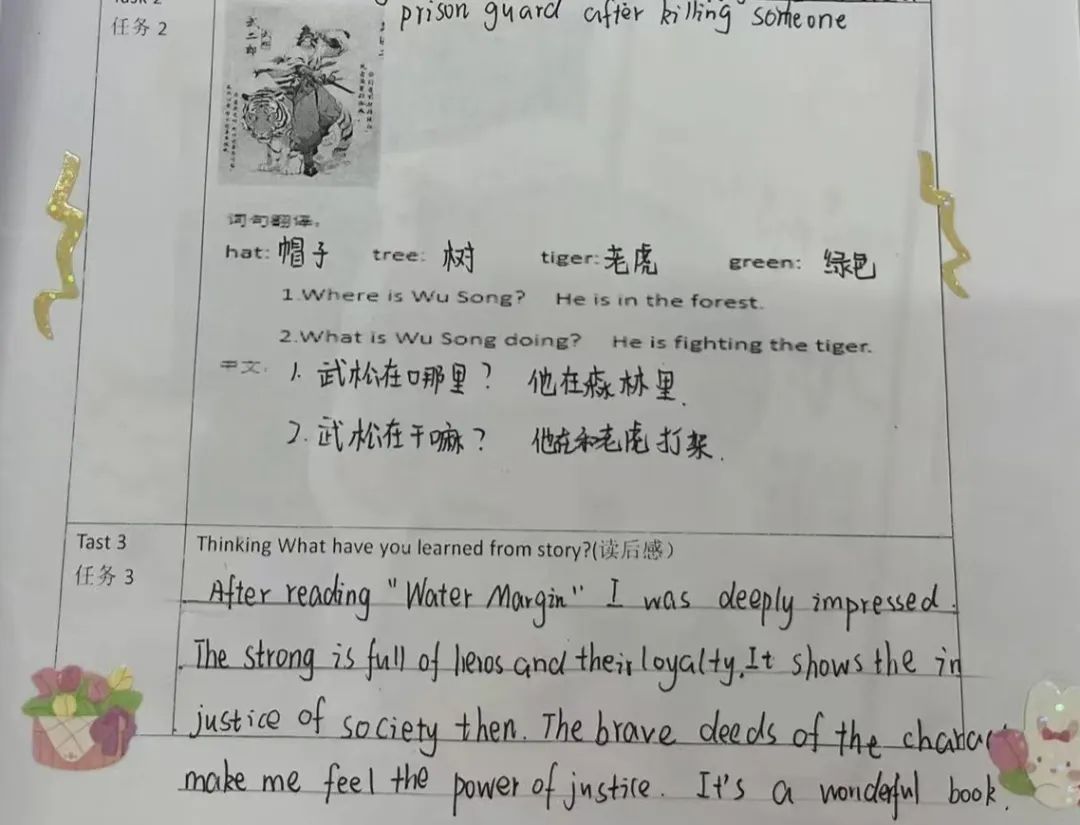 任务 2
prison guard after killing someone
武二郎
词句翻译。
hat: 帽子 tree: 树 tiger: 老虎 green: 绿色
1.Where is Wu Song? He is in the forest.
2.What is Wu Song doing? He is fighting the tiger.
中文: 1. 武松在哪里? 他在森林里.
2. 武松在干嘛? 他在和老虎打架.
Tast 3
任务 3
Thinking What have you learned from story?(读后感)
After reading "Water Margin" I was deeply impressed.
The strong is full of heros and their loyalty. It shows the in
justice of society then. The brave deeds of the charac
make me feel the power of justice. It's a wonderful book.